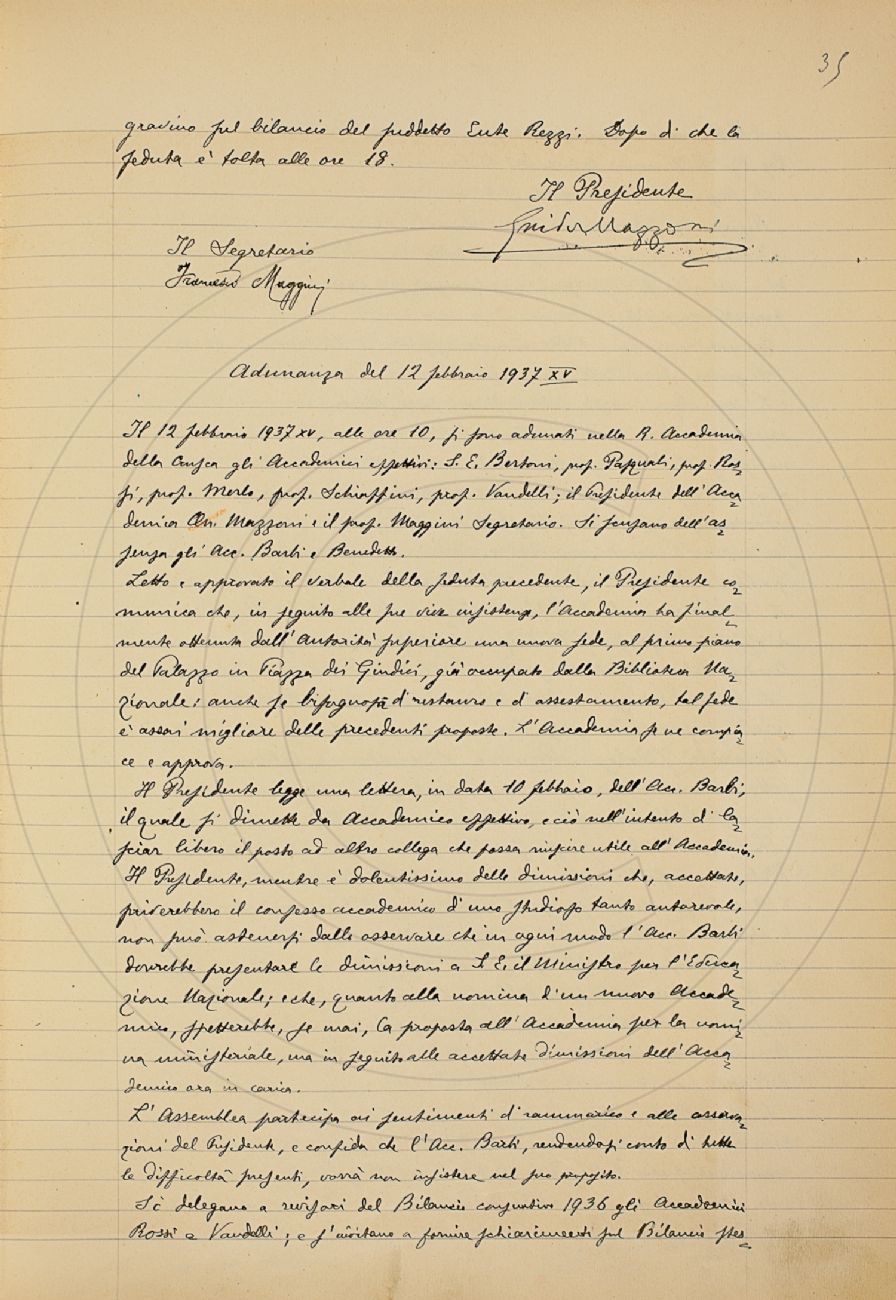 35
gravino sul bilancio del suddetto Ente Rezzi. Dopo di che la
seduta è tolta alle ore 18.
Il Presidente
Guido Mazzoni
Il Segretario
Francesco Maggini
Adunanza del 12 febbraio 1937 XV
Il 12 febbraio 1937 XV, alle ore 10, si sono adunati nella R. Accademia
della Crusca gli Accademici effettivi: S. E. Bertoni, prof. Pasquali, prof. Ros=
si, prof. Merlo, prof. Schiaffini, prof. Vandelli; il Presidente dell'Acca=
demia On. Mazzoni e il prof. Maggini Segretario. Si scusano dell'as=
senza gli Acc. Barbi e Benedetto.
Letto e approvato il verbale della seduta precedente, il Presidente co=
munica che, in seguito alle sue vive insistenze, l'Accademia ha final=
mente ottenuta dall'Autorità superiore una nuova sede, al primo piano
del Palazzo in Piazza dei Giudici, già occupato dalla Biblioteca Na=
zionale: anche se bisognosa di restauro e di assestamento, tal sede
è assai migliore delle precedenti proposte. L'Accademia se ne compia=
ce e approva.
Il Presidente legge una lettera, in data 10 febbraio, dell'Acc. Barbi,
il quale si dimette da Accademico effettivo, e ciò nell'intento di la=
sciar libero il posto ad altro collega che possa riuscire utile all'Accademia.
Il Presidente, mentre è dolentissimo delle dimissioni che, accettate,
priverebbero il consesso accademico d'uno studioso tanto autorevole,
non può astenersi dalle osservare che in ogni modo l'Acc. Barbi
dovrebbe presentare le dimissioni a S. E. il Ministro per l'Educa=
zione Nazionale; e che, quanto alla nomina d'un nuovo Accade=
mico, spetterebbe, se mai, la proposta all'Accademia per la nomi=
na ministeriale, ma in seguito alle accettate dimissioni dell'Acca=
demico ora in carica.
L'Assemblea partecipa ai sentimenti di rammarico e alle osserva=
zioni del Presidente, e confida che l'Acc. Barbi, rendendosi conto di tutte
le difficoltà presenti, vorrà non insistere nel suo proposito.
Si delegano a revisori del Bilancio consuntivo 1936 gli Accademici
Rossi e Vandelli; e s'invitano a fornire schiarimenti sul Bilancio stes=